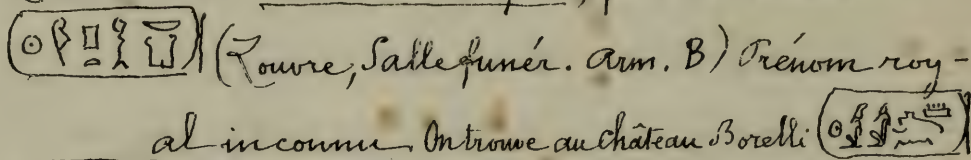 (Louvre, Salle funér. Arm. B) Prénom roy-
al inconnu. On trouve au château Borelli